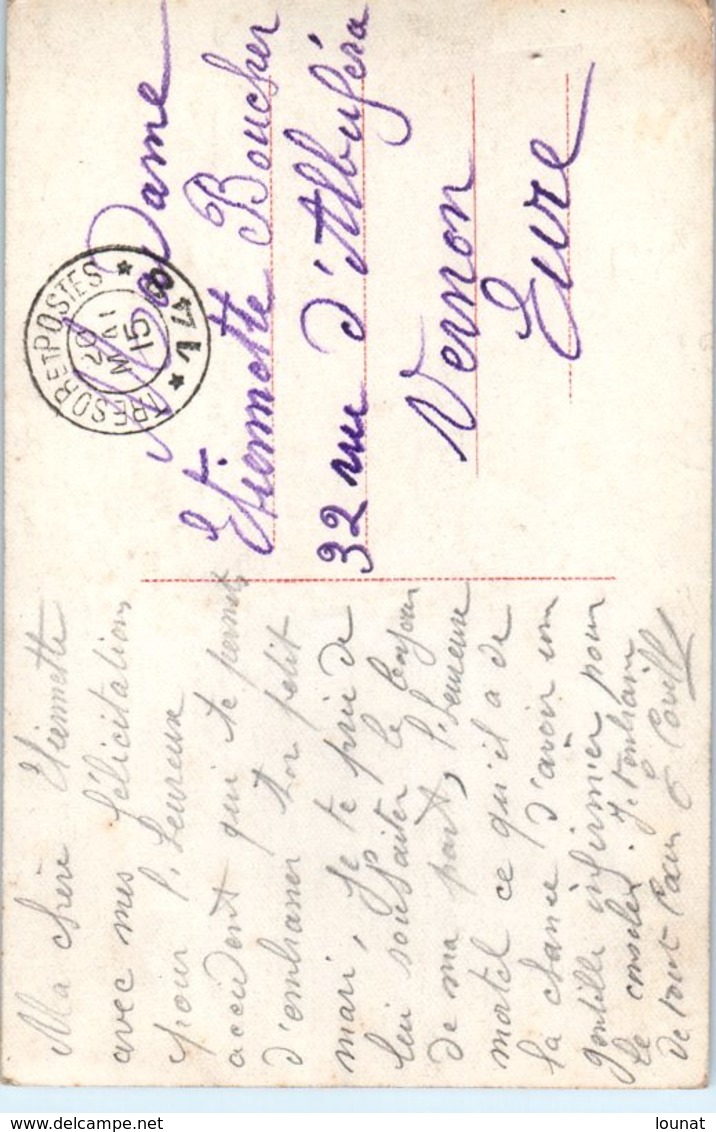 Ma chère Etiennette
avec mes félicitations
pour l'heureux
accident qui te permet
d'embrasser ton petit
mari, Je te prie de
lui souhaiter le bonjour
de ma part, l'heureux
mortel ce qu'il a de
la chance d'avoir une
gentille infirmier pour
le consoler. Je t'embrasse
de tout
Madame
Etiennette Boucher
32 rue d'Albuféra
Vernon
Eure
TRESOR ET POSTES
20
MAI
15
* 148 *
lounat